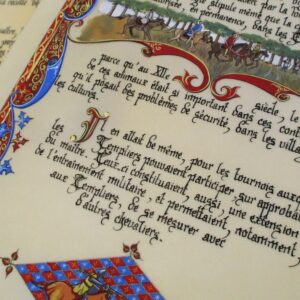 stipule même que la
et permanent, dans les
parce qu'au XIIe siècle, le
de ces animaux était si important dans ces con
qu'il posait des problèmes de sécurité, dans les villa
les cultures.
Il en allait de même, pour les tournois auxq
les Templiers pouvaient participer sur approba
du maître
constituaient, aussi, une extension
de l'entraînement militaire, et permettaient, notamment
aux Templiers, de se mesurer avec
d'autres chevaliers.